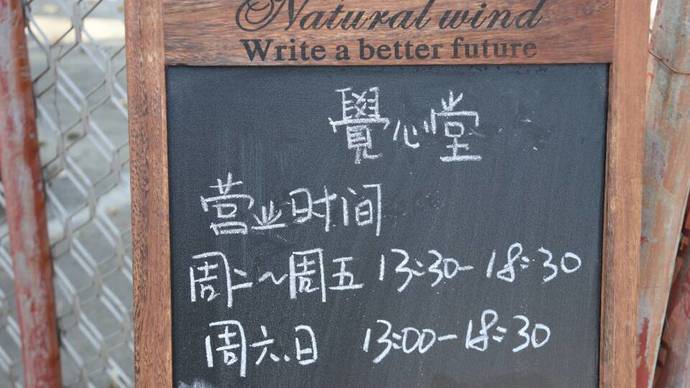 Natural wind
Write a better future
覺心堂
营业时间
周二~周五 13:30-18:30
周六.日 13:00-18:30